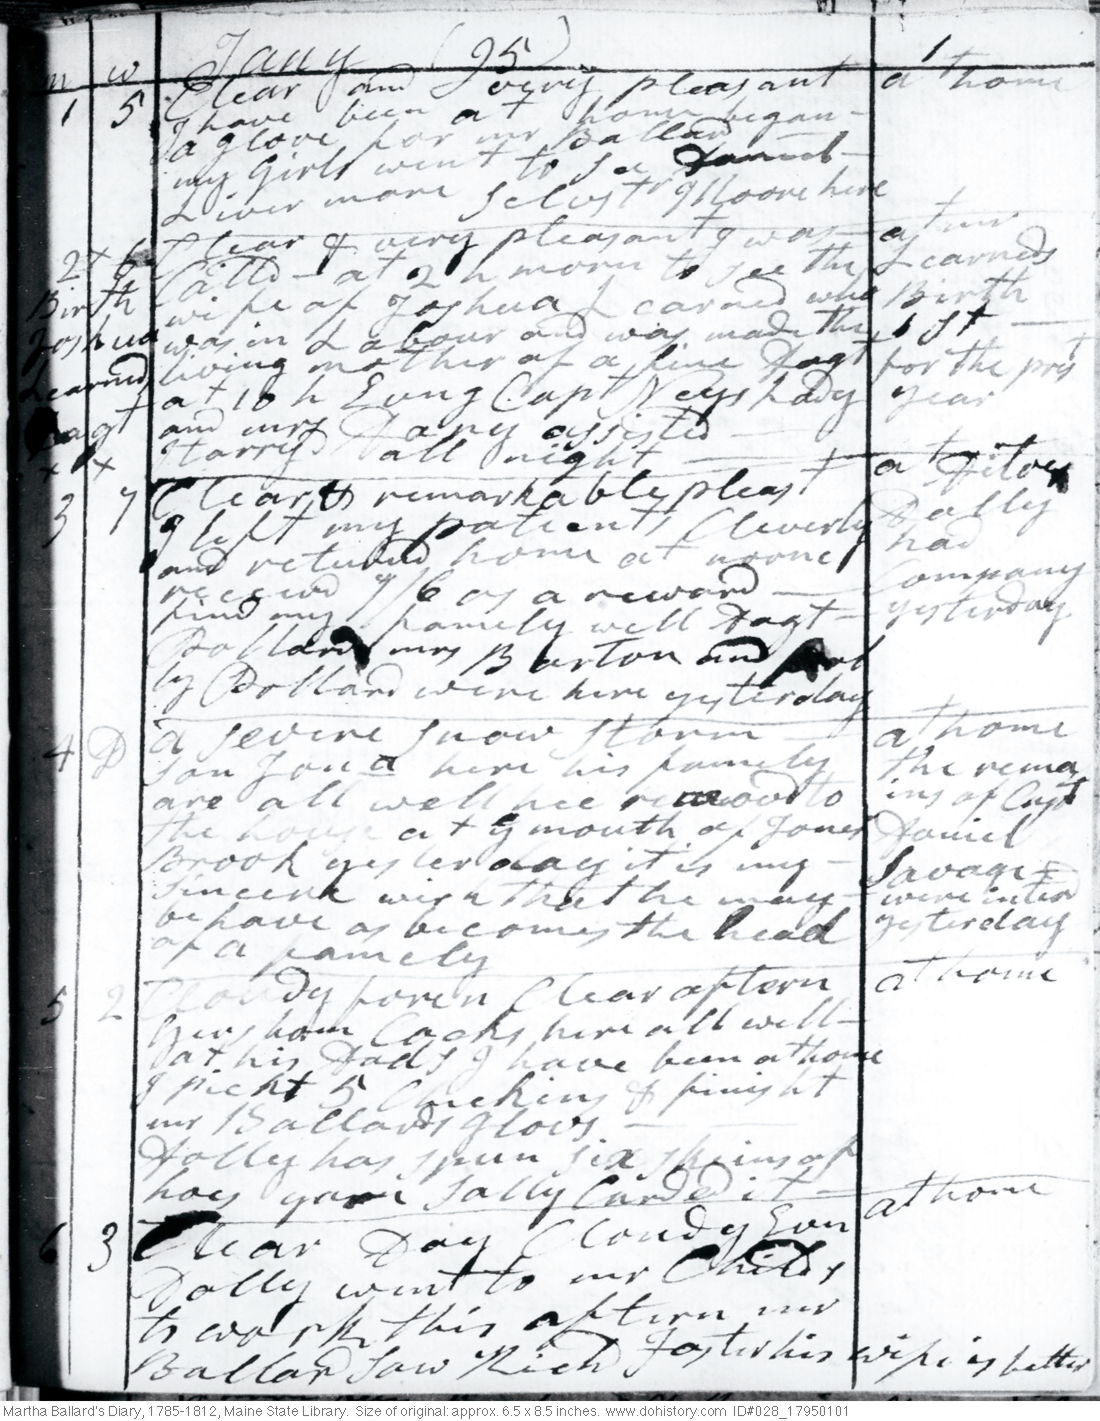 m w Jany (95) 1
1 5 Clear and very pleasant at home
I have been at home began
a glove for mr Ballard
my Girls went to se
Livermore Selvest Moore here
2 x 6 Clear & very pleasant I was at mr
Calld at 2 h morn to see the Learneds
Birth wife of Joshua Learned who Birth
Joshua was in Labour and was made the 1st
Learned living mother of a fine Dagt for the prst
at 10 h Evng Capt Neys Lady year
Dagt and mrs Dany assisted
x x tarryd all night
3 7 Clear & remarkable pleast at ditoes
I left my patients Cleverly Dolly
and returnd home at noone had
receivd 7/6 as a reward Company
find my famely well Dagt yesterday
Pollard mrs Barton and
ly Pollard were here yesterday
4 D a severe snow storm at home
son Jona here his famely the rema
are all well hee removd to ins of Capt
the house at ye mouth of Jones Daniel
Brook yesterday it is my Savage
sincere wish that he may were interd
behave as becomes the head yesterday
of a famely
5 2 Cloudy foren Clear aftern at home
Gershom Cocks here all well
at his Dads I have been at home
I pickt 5 Chickins & finisht
mr Ballards glovs
Dolly has spun six skeins of
hoes yarn Sally Carded it at home
6 3 Clear Day Cloudy Evn
Dolly went to mr Childs
to work this aftern mr
Ballard saw Richd Foster his wife is better
Martha Ballard's Diary, 1785-1812, Maine State Library. Size of original: approx. 6.5 x 8.5 inches. www.dohistory.com ID#028_17950101